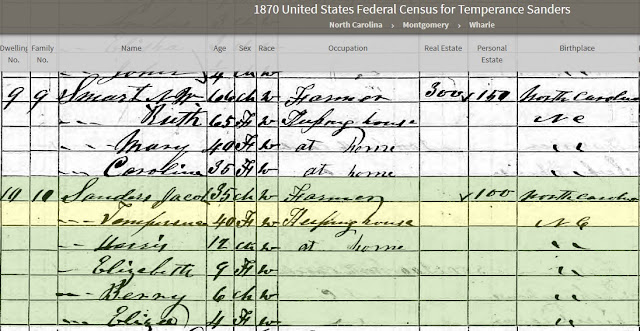 1870 United States Federal Census for Temperance Sanders
North Carolina > Montgomery > Wharie
Dwelling No. Family No. Name Age Sex Race Occupation Real Estate Personal Estate Birthplace
4 W
9 9 Smart 66 W Farmer 300 150 North Carolina
— Ruth 65 F W Keeping house N C
— Mary 40 F W at home "
— Caroline 35 F W at home "
10 10 Sanders Jacob 35 W Farmer 100 North Carolina
— Temperance 40 F W Keeping house N C
— Harris 12 W at home "
— Elizabeth 9 F W "
— Benny 6 W "
— Eliza 4 F W "